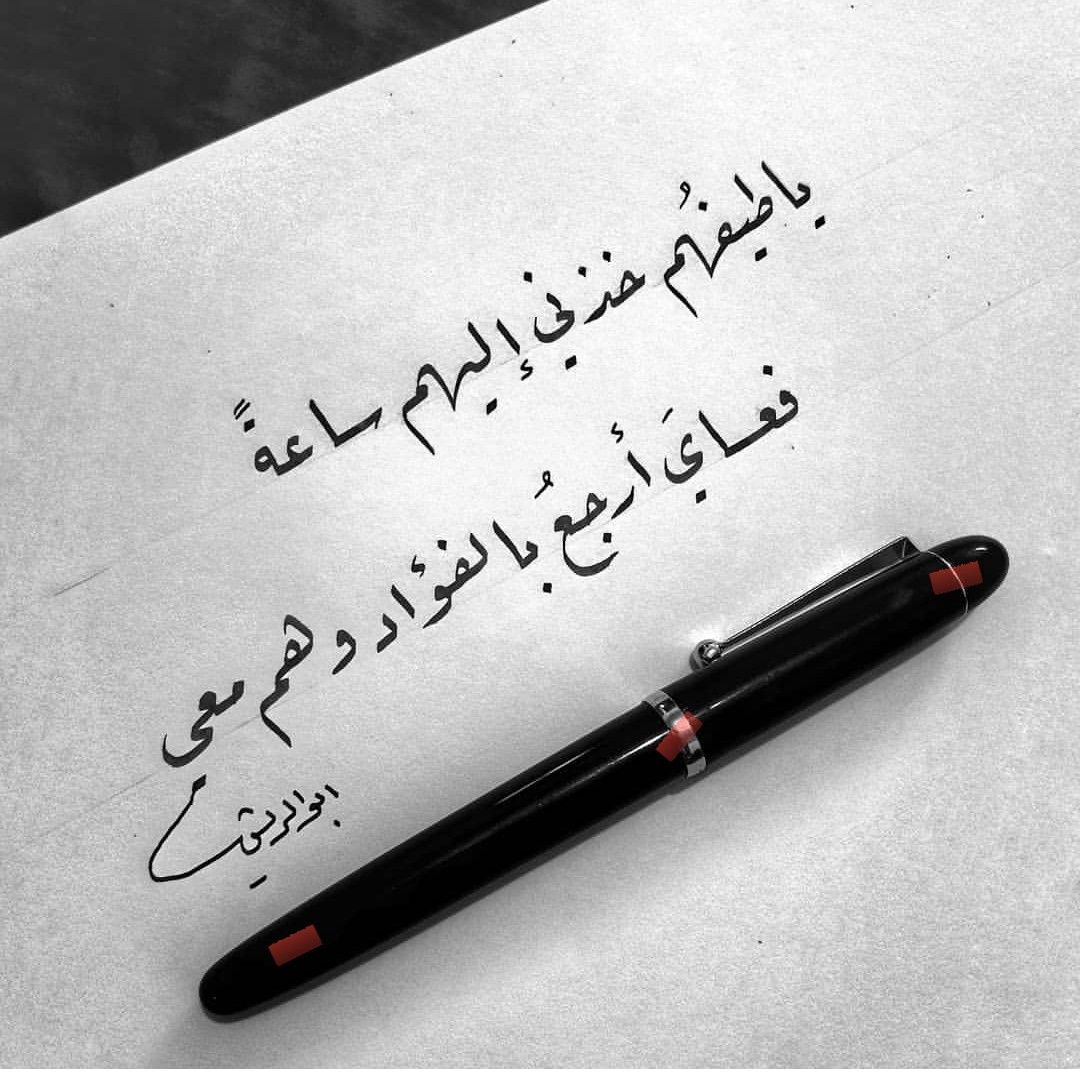 يا طيفهُم خذني إليهم ساعةً
فعسايَ أرجعُ بالفؤاد وهم معي
ابو الريش